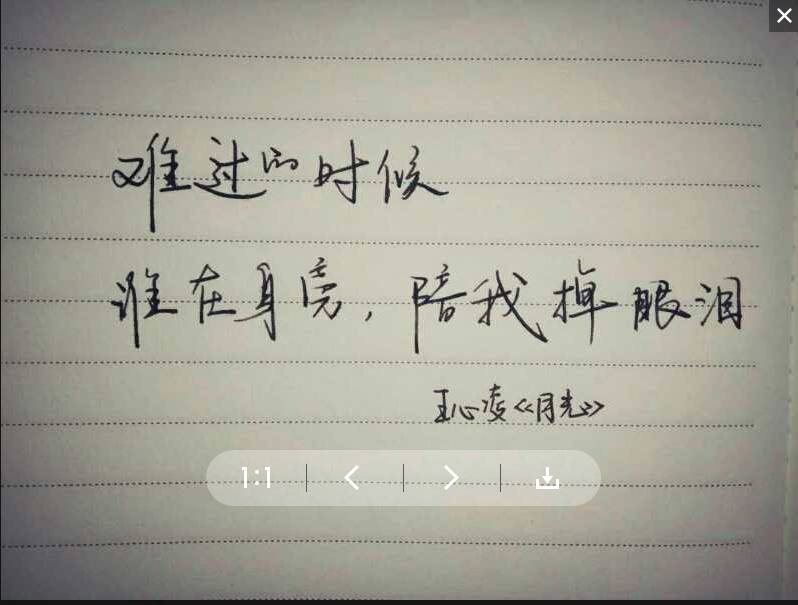 难过的时候
谁在身旁，陪我掉眼泪
王心凌《月光》
1:1